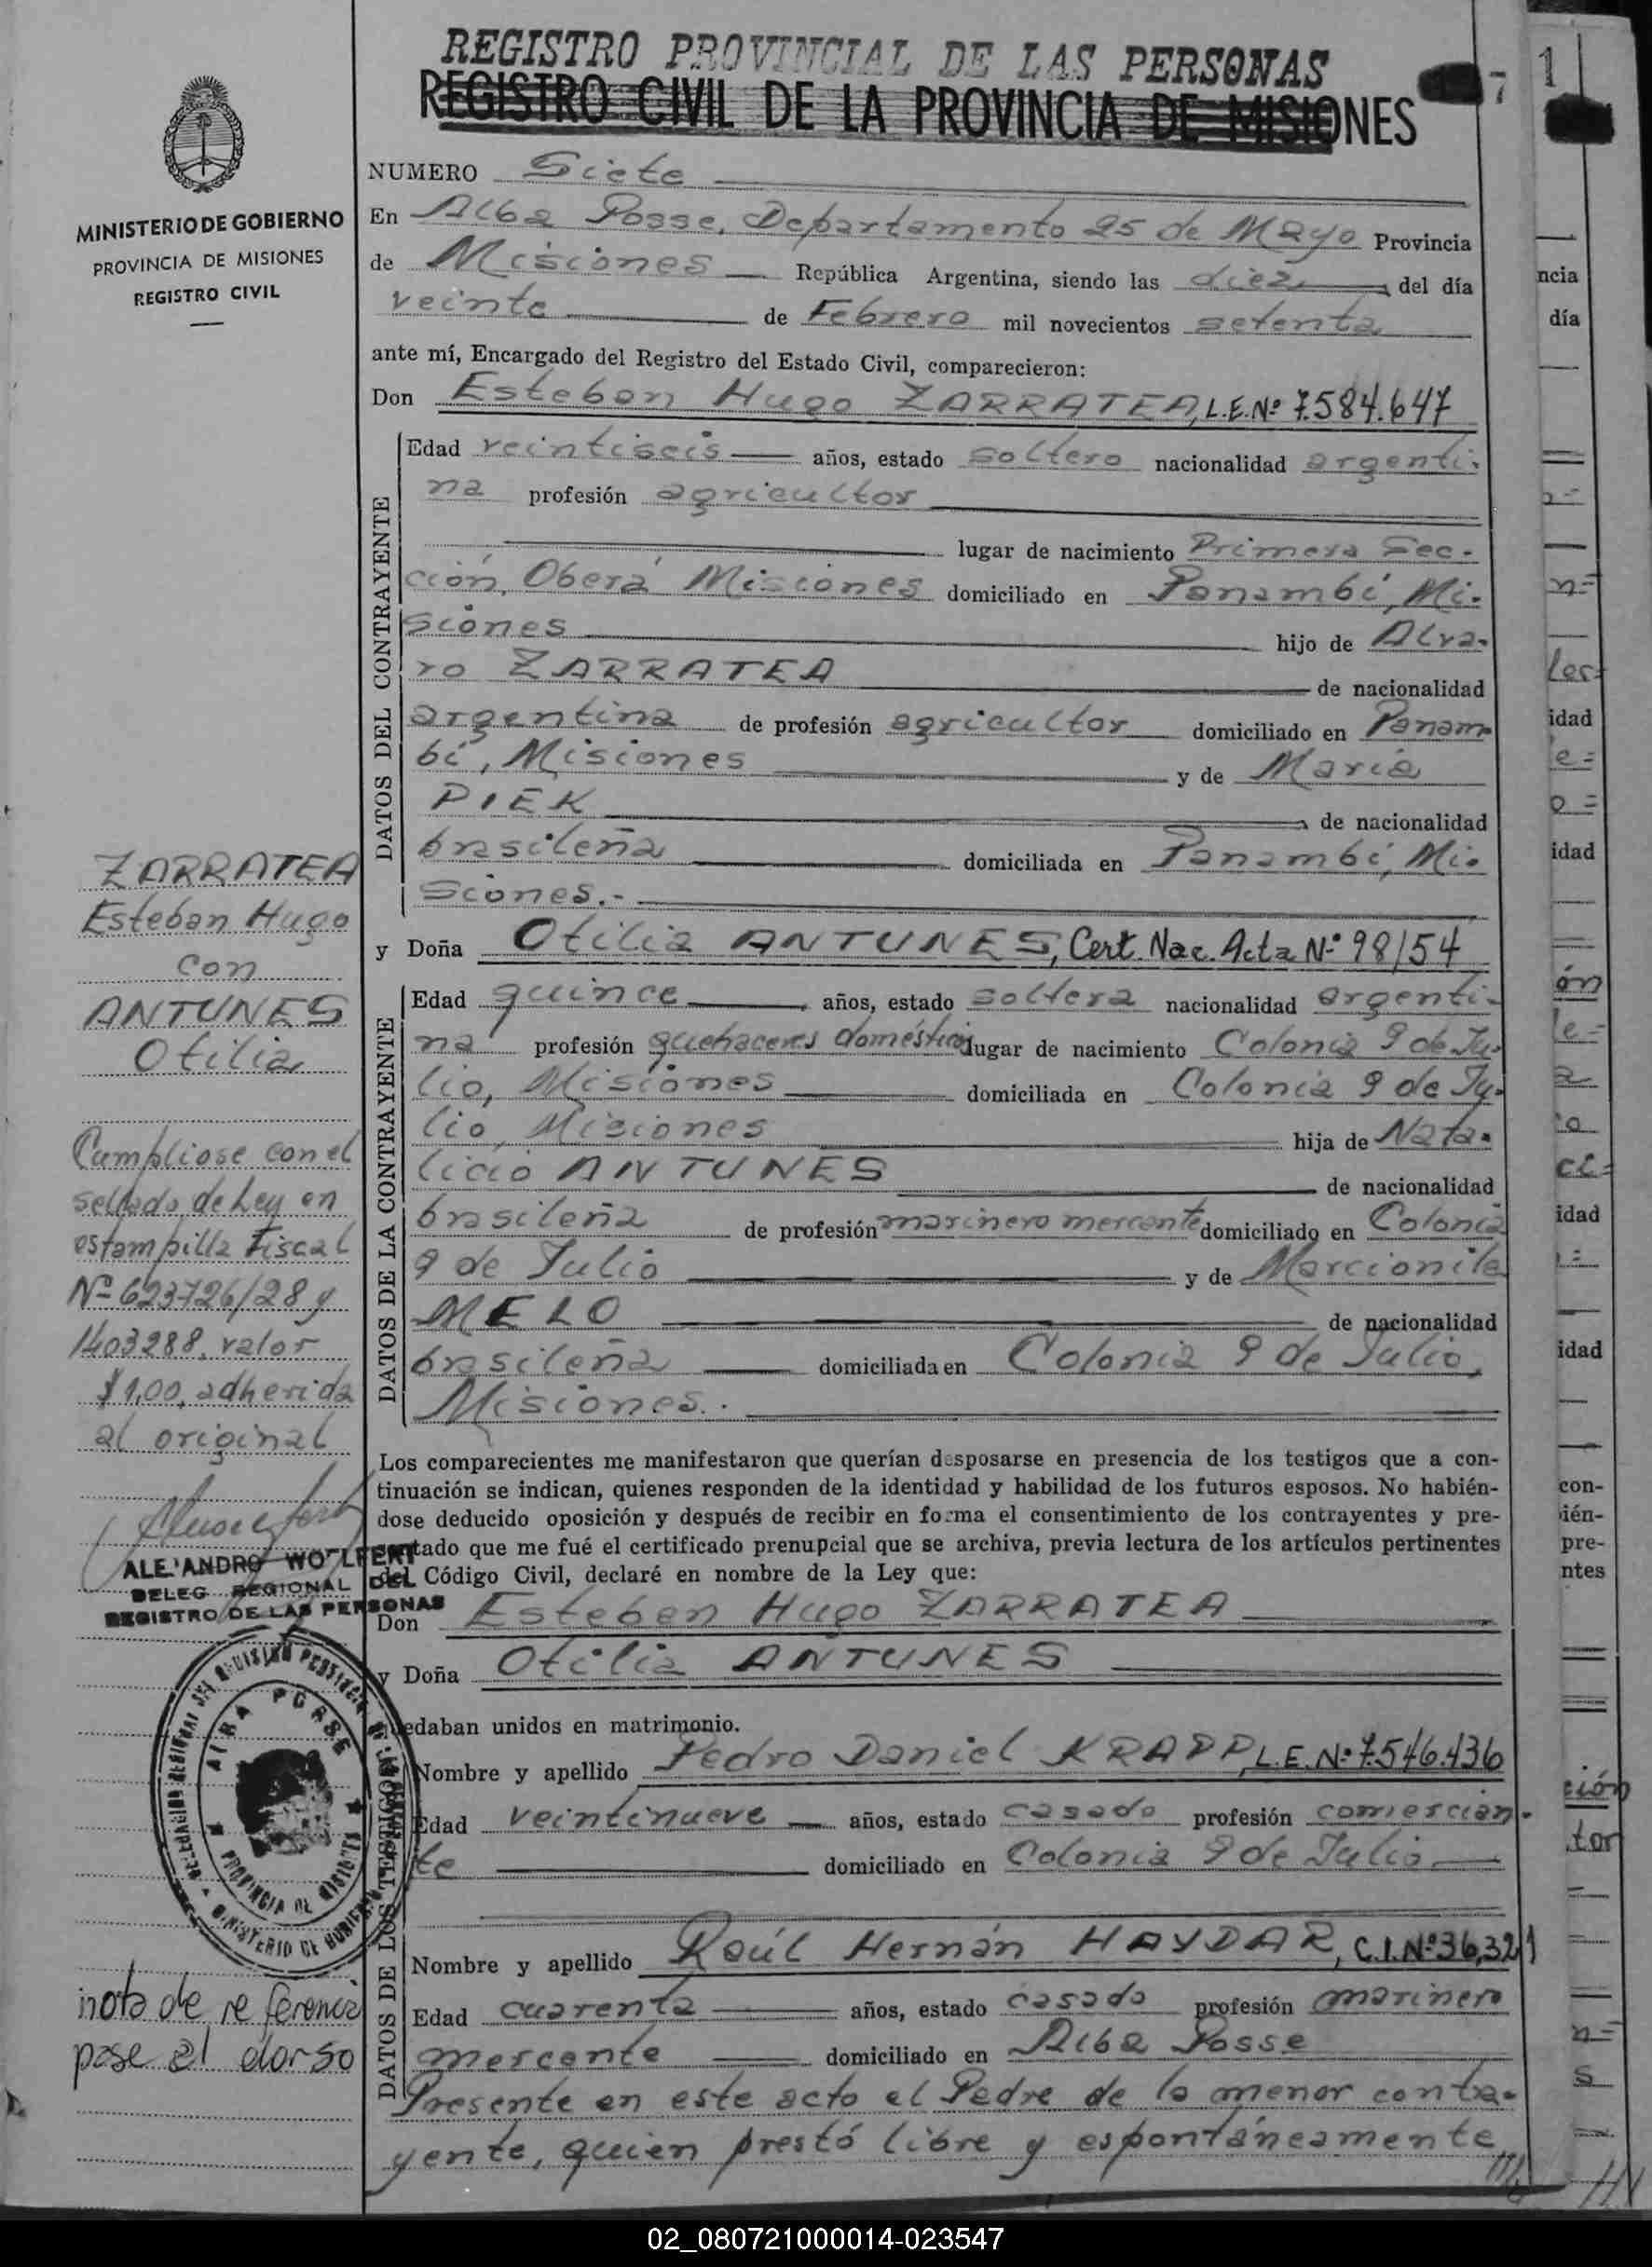 REGISTRO PROVINCIAL DE LAS PERSONAS
REGISTRO CIVIL DE LA PROVINCIA DE MISIONES
7
1
MINISTERIO DE GOBIERNO
PROVINCIA DE MISIONES
REGISTRO CIVIL
NUMERO Siete
En Alba Posse, Departamento 25 de Mayo Provincia
de Misiones República Argentina, siendo las diez del día
veinte de Febrero mil novecientos setenta
ante mí, Encargado del Registro del Estado Civil, comparecieron:
Don Esteban Hugo ZARRATEA, L.E.Nº 7.584.647
DATOS DEL CONTRAYENTE
Edad veintiseis años, estado soltero nacionalidad argenti-
na profesión agricultor
lugar de nacimiento Primera Sec-
ción, Oberá Misiones domiciliado en Panambí, Mi-
siones hijo de Alva-
ro ZARRATEA de nacionalidad
argentina de profesión agricultor domiciliado en Panam
bí, Misiones y de María
PIEK de nacionalidad
brasileña domiciliada en Panambí, Mi-
siones.-
y Doña Otilia ANTUNES, Cert. Nac. Acta Nº 98/54
DATOS DE LA CONTRAYENTE
Edad quince años, estado soltera nacionalidad argenti-
na profesión quehaceres domésticos lugar de nacimiento Colonia 9 de Ju-
lio, Misiones domiciliada en Colonia 9 de Ju-
lio, Misiones hija de Nata-
licio ANTUNES de nacionalidad
brasileña de profesión marinero mercante domiciliado en Colonia
9 de Julio y de Marcionila
MELO de nacionalidad
brasileña domiciliada en Colonia 9 de Julio,
Misiones.
Los comparecientes me manifestaron que querían desposarse en presencia de los testigos que a con-
tinuación se indican, quienes responden de la identidad y habilidad de los futuros esposos. No habién-
dose deducido oposición y después de recibir en forma el consentimiento de los contrayentes y pre-
sentado que me fué el certificado prenupcial que se archiva, previa lectura de los artículos pertinentes
del Código Civil, declaré en nombre de la Ley que:
Don Esteban Hugo ZARRATEA
y Doña Otilia ANTUNES
quedaban unidos en matrimonio.
DATOS DE LOS TESTIGOS
Nombre y apellido Pedro Daniel KRAPP, L.E.Nº 7.546.436
Edad veintinueve años, estado casado profesión comercian-
te domiciliado en Colonia 9 de Julio
Nombre y apellido Raúl Hernán HAYDAR, C.I.Nº 36,321
Edad cuarenta años, estado casado profesión marinero
mercante domiciliado en Alba Posse
Presente en este acto el Padre de la menor contra-
yente, quien prestó libre y espontáneamente
ZARRATEA
Esteban Hugo
con
ANTUNES
Otilia
Cumpliose con el
sellado de Ley en
estampilla Fiscal
Nº 623726/28 y
1403288, valor
$ 1,00, adherida
al original
ALEJANDRO WOLFERT
DELEG. REGIONAL DEL
REGISTRO DE LAS PERSONAS
ALBA POSSE
PROVINCIA DE MISIONES
MINISTERIO DE GOBIERNO
nota de referencia
pase al dorso
ncia
día
idad
idad
idad
idad
con-
ién-
pre-
ntes
02_080721000014-023547